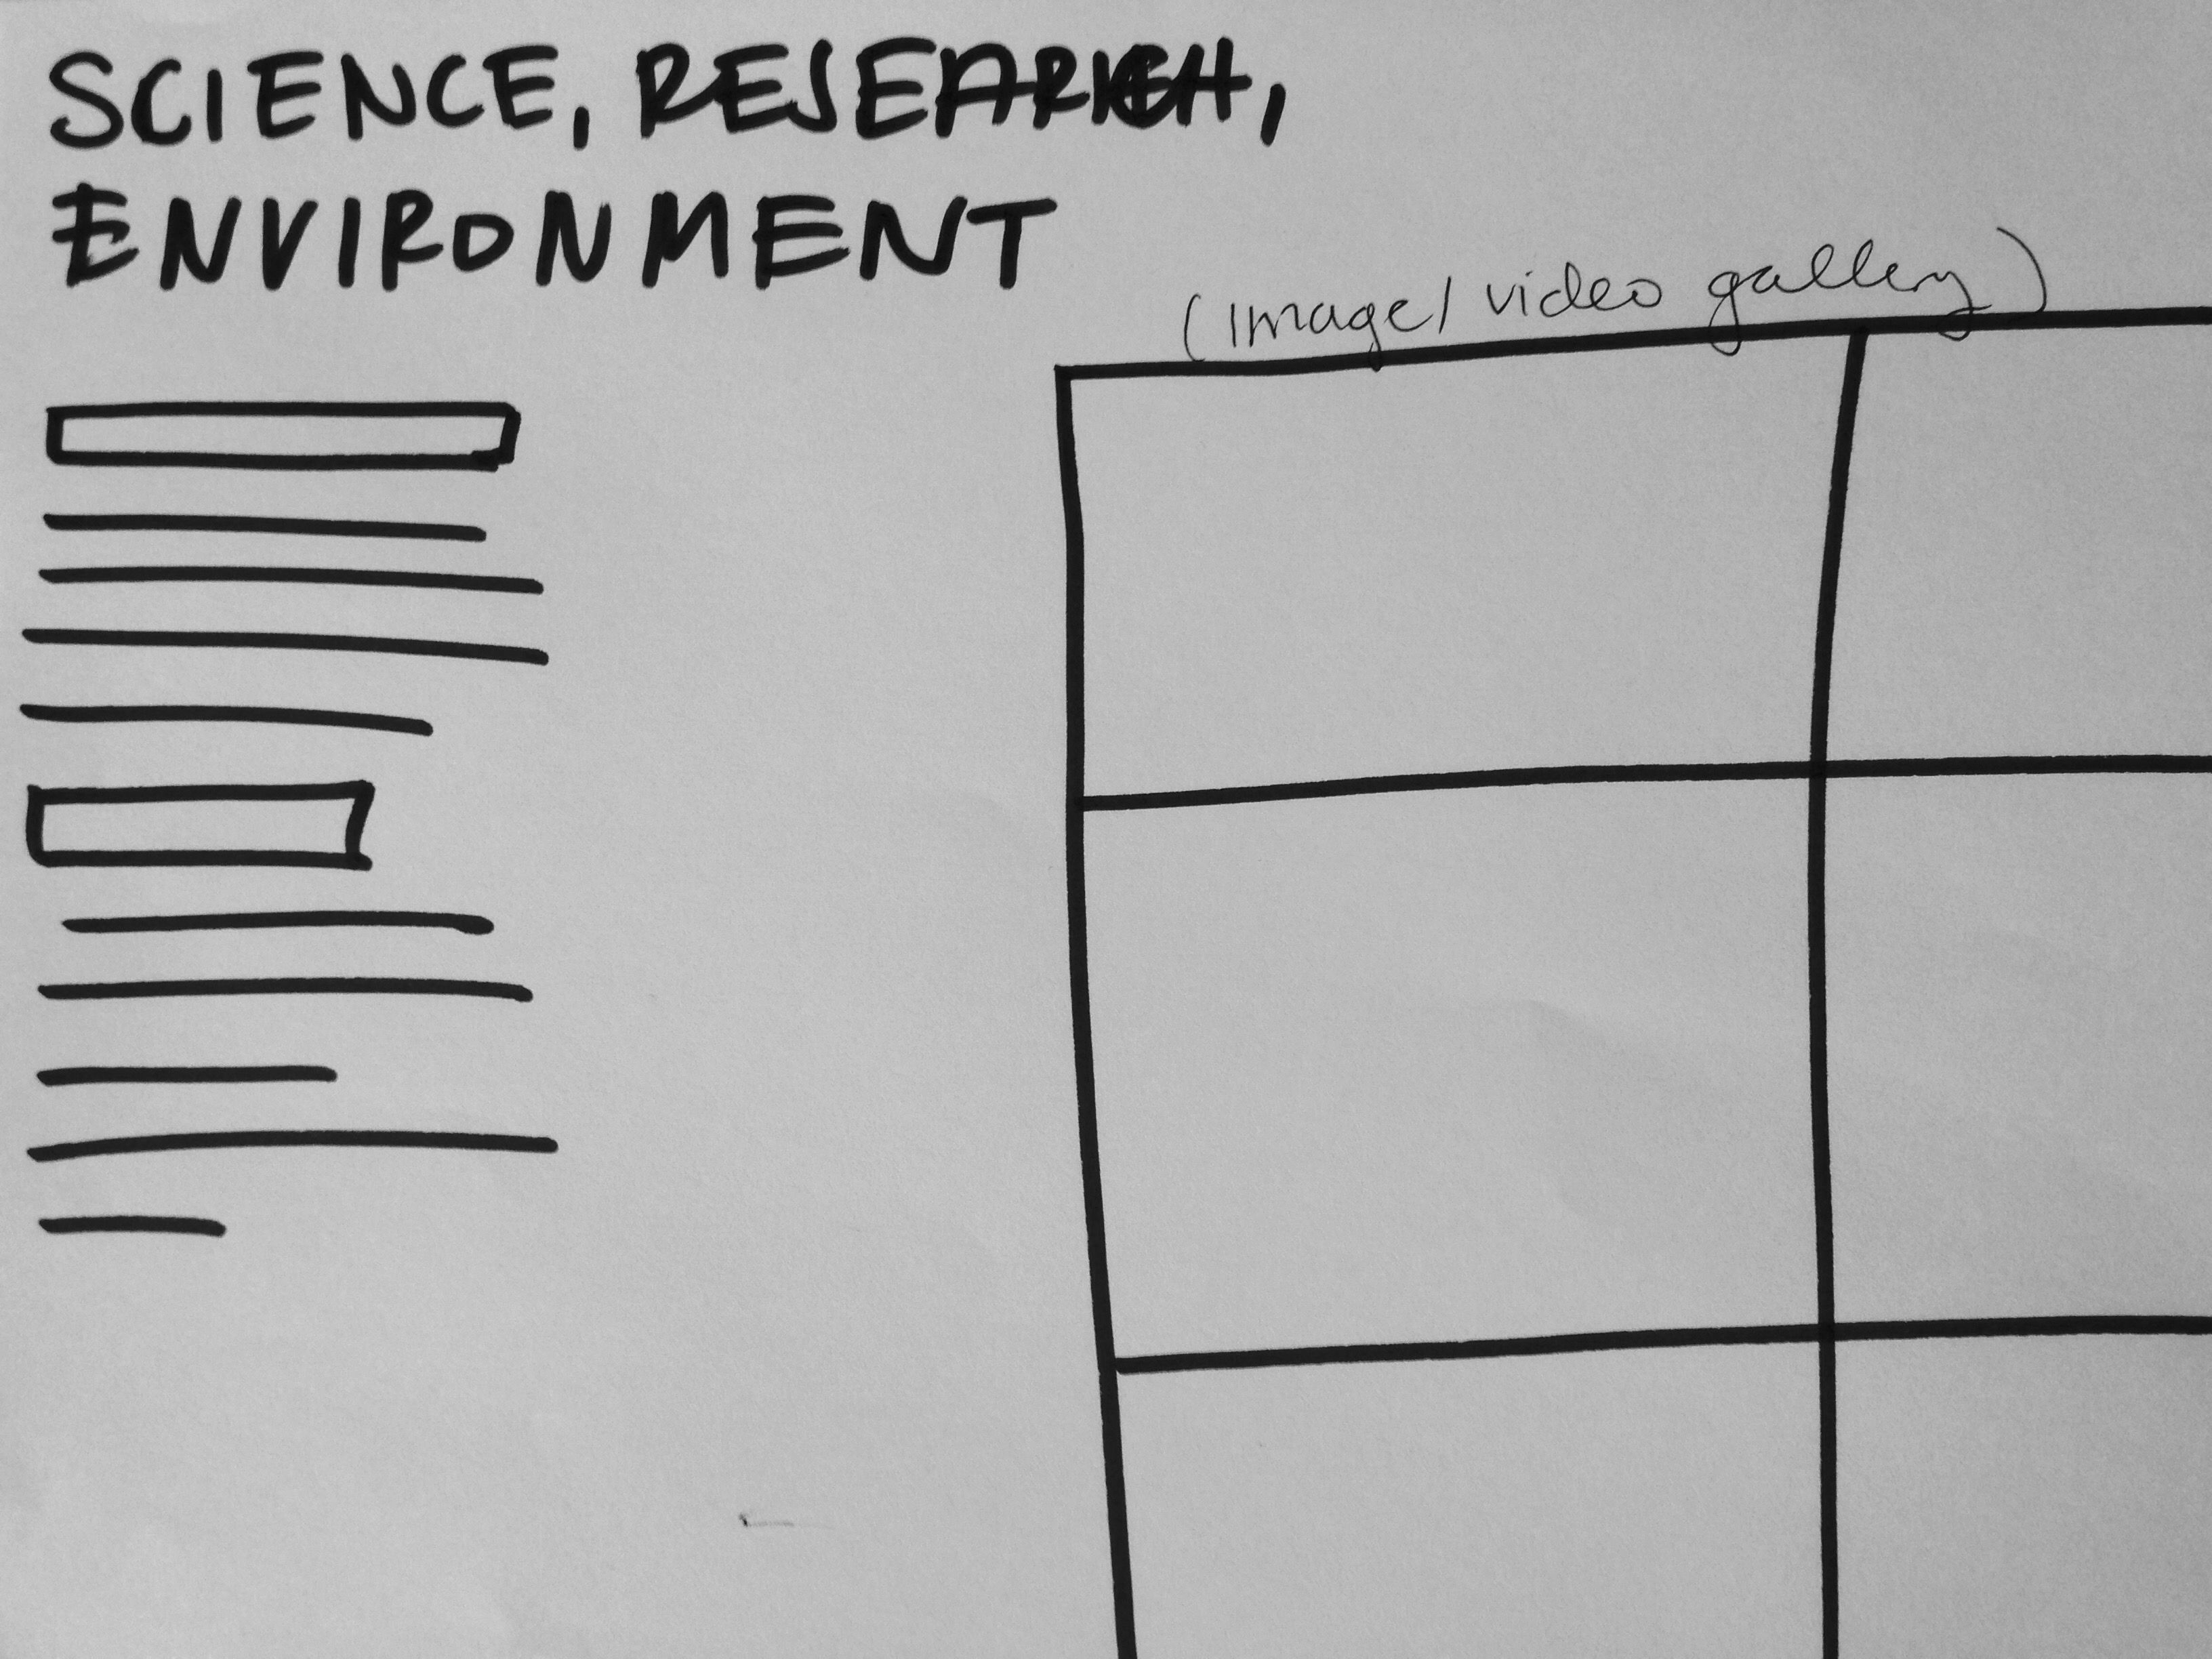 SCIENCE, RESEARCH,
ENVIRONMENT
(Image/video gallery)